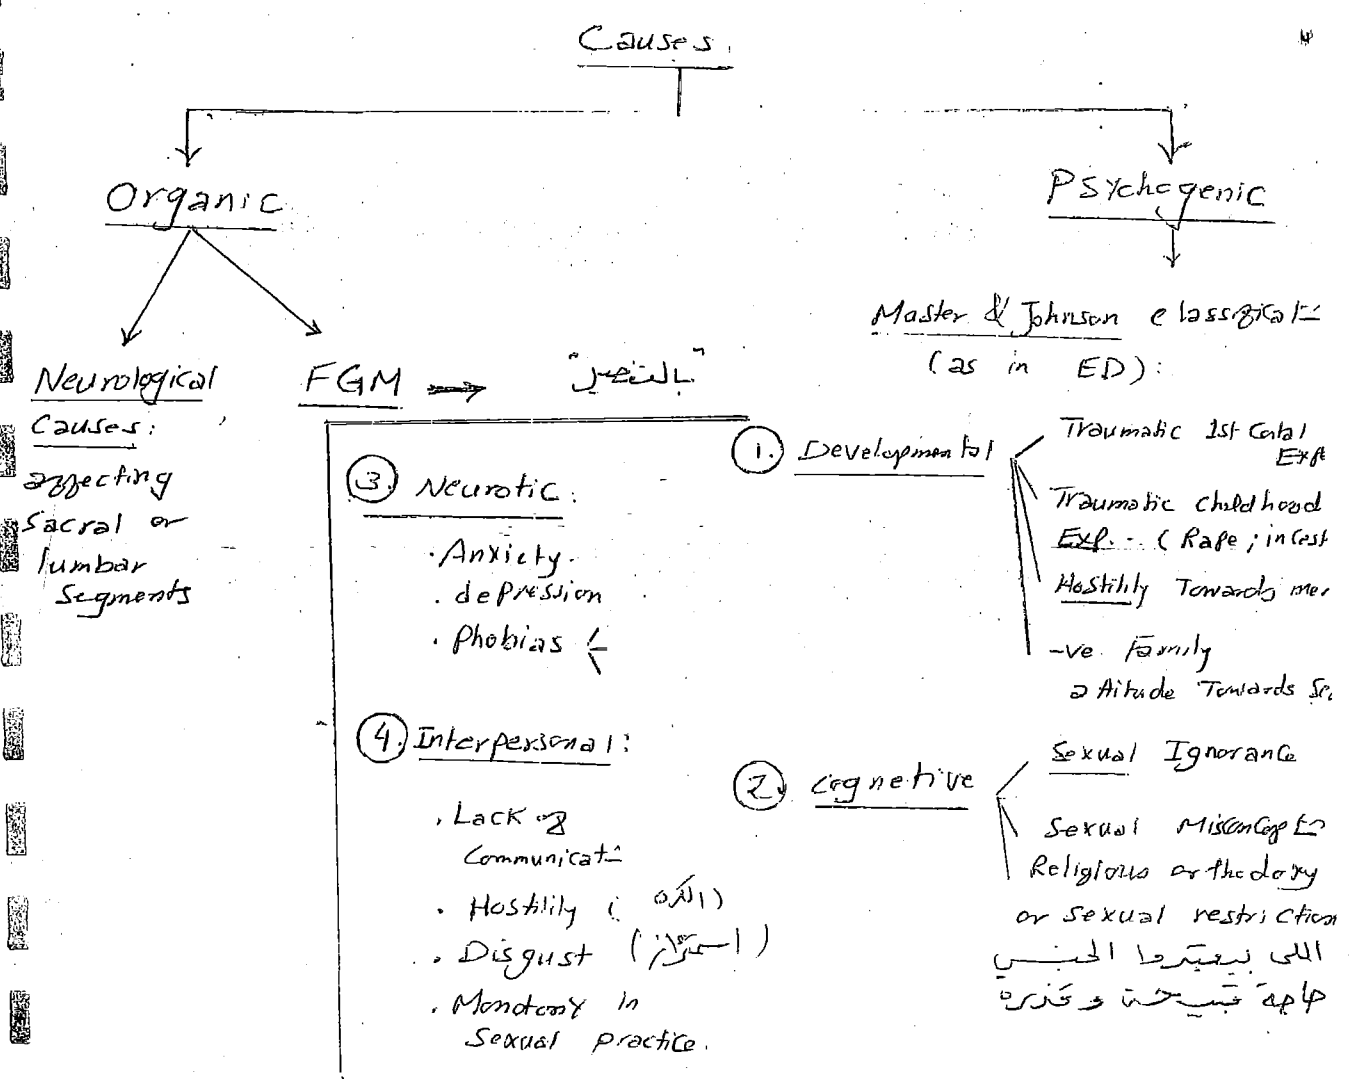 Causes.
Organic
Psychogenic
Neurological
Causes:
affecting
Sacral or
lumbar
Segments
FGM → "بالتفصيل"
Master & Johnson classificat=
(as in ED):
1. Developmental
Traumatic 1st Coital
Exp
Traumatic Childhood
Exp... (Rape ; incest
Hostility Towards me
-ve Family
attitude Towards Se
2. Cognetive
Sexual Ignorance
Sexual Misconcept=
Religious orthodoxy
or sexual restriction
اللى بيعتبروا الجنس
حاجة قبيحة و قذره
3. Neurotic:
. Anxiety.
. depression
. Phobias
4. Interpersonal:
. Lack of
Communicat=
. Hostility (الكره)
. Disgust (اشمئزاز)
. Monotony in
Sexual practice.